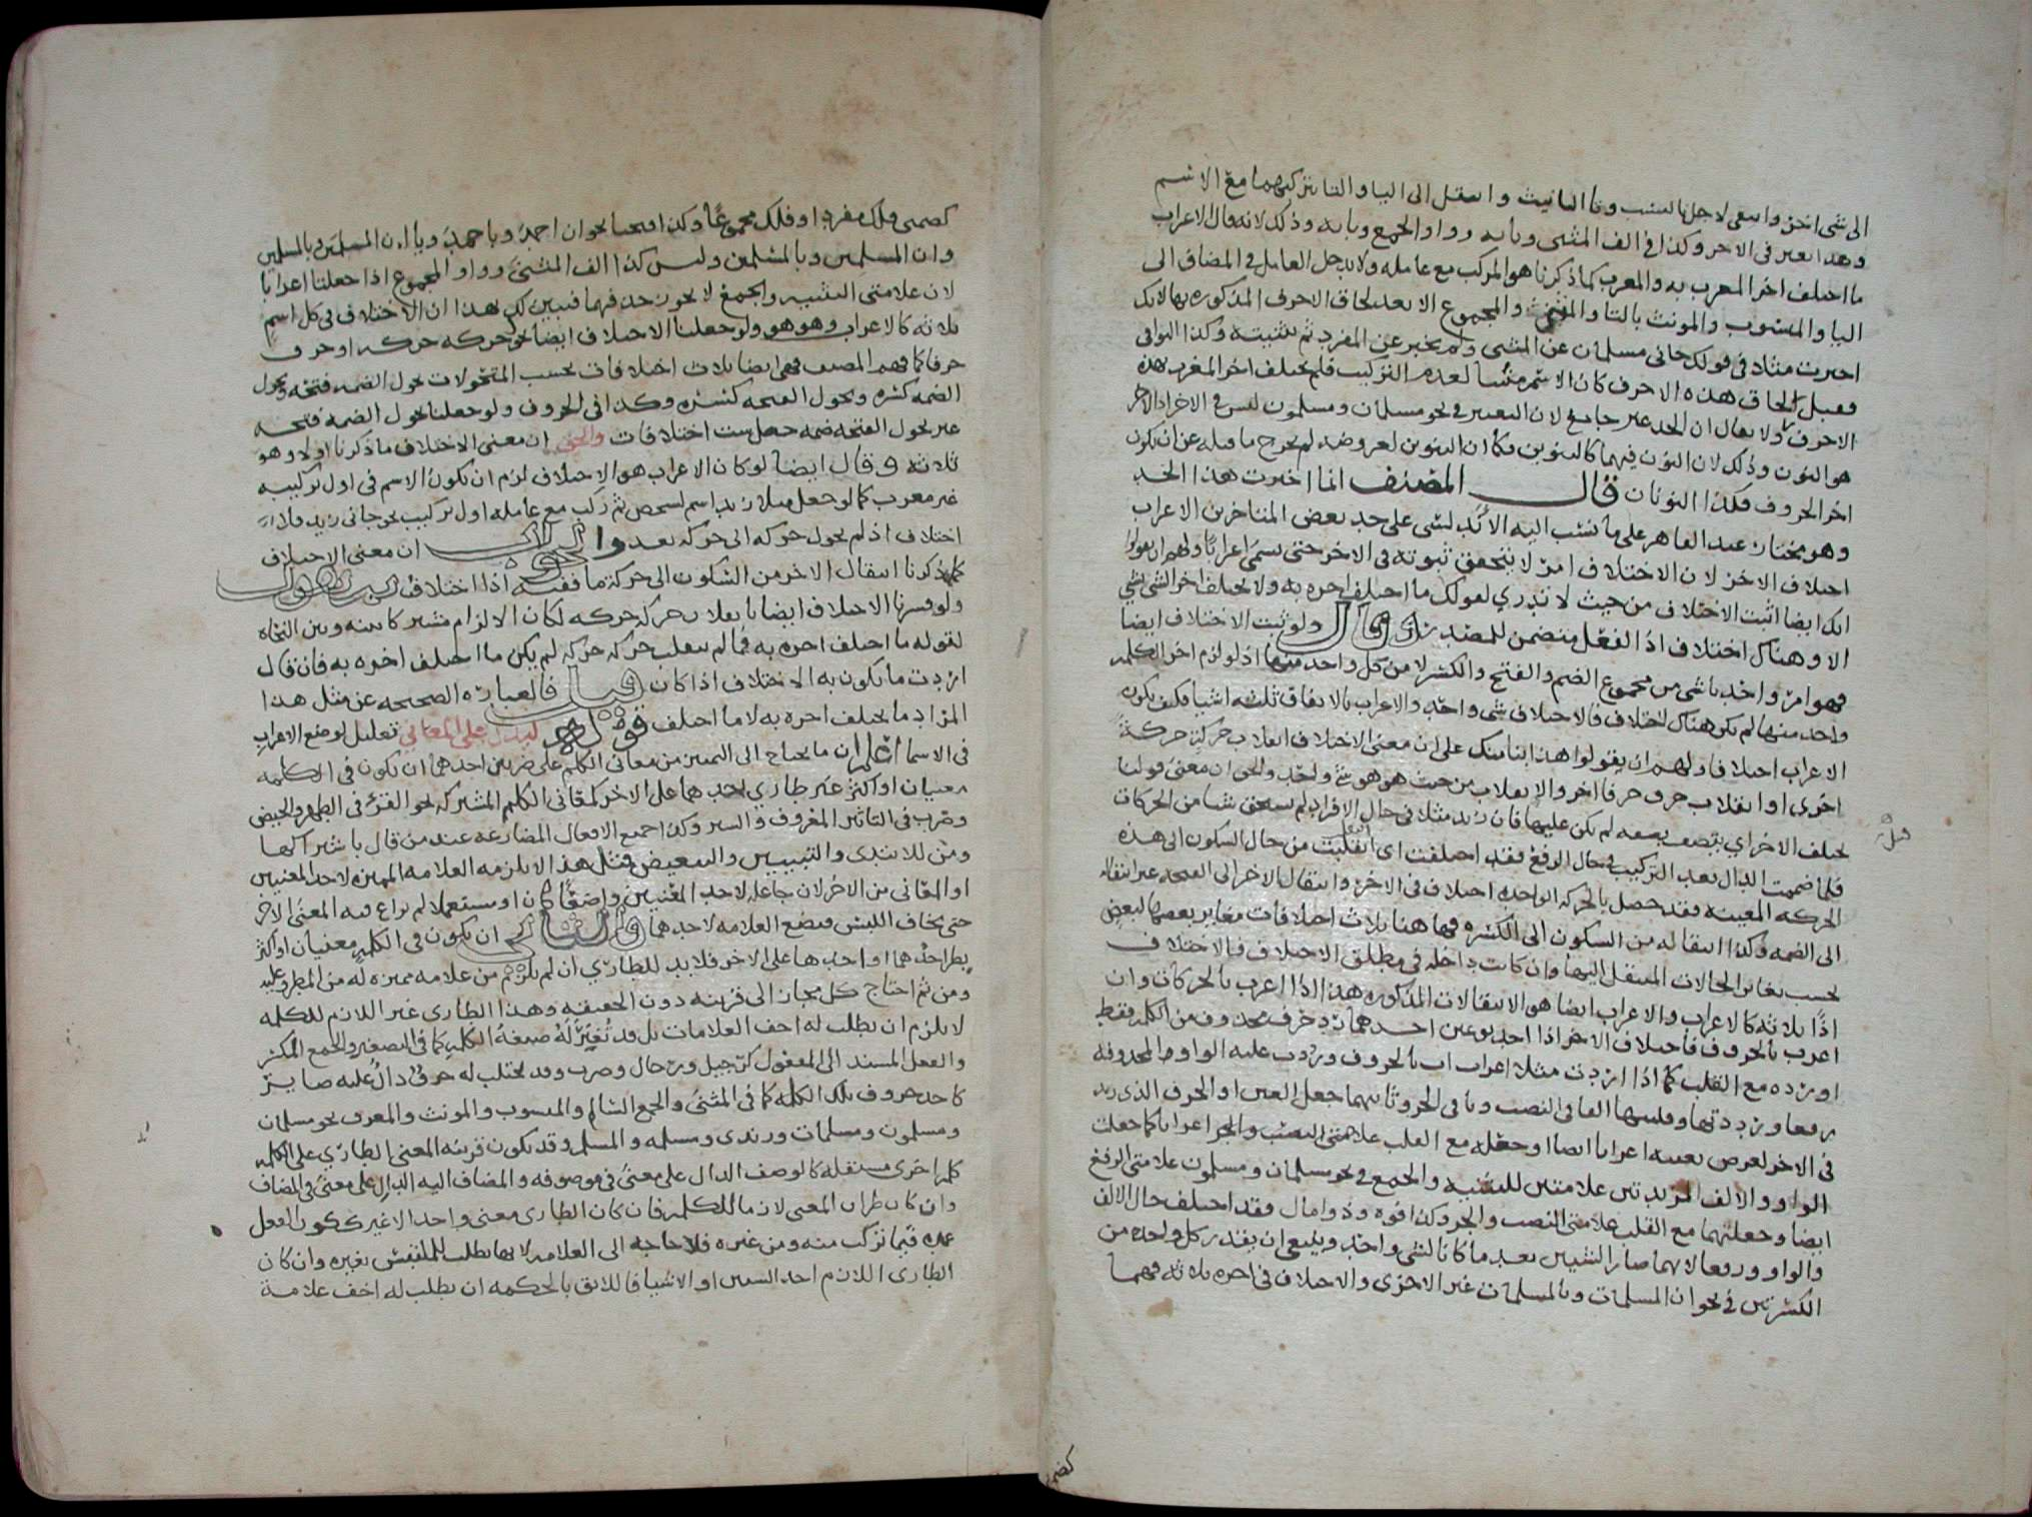 الى شى اخر وانمعى لاجل يا النسب وتا التانيث وانتقل الى اليا والتا بتركبهما مع الاسم
وهذا تغير فى الاخر وكذا فى الف المثنى وبابه وواو الجمع وبابه وذلك لانه قال الاعراب
ما اختلف اخر المعرب به والمعرب كما ذكرنا هو المركب مع عامله ولا يدخل العامل فى المضاف الى
اليا والمنسوب والمونث بالتا والمثنى والمجموع الا بعد لحاق الاحرف المذكورة بها لانك
اخبرت مثلا فى قولك جانى مسلمان عن المثنى ولم يخبر عن المفرد ثم تثنيته وكذا البواقى
فقبل لحاق هذه الاحرف كان الاسم مبنيا لعدم التركيب فلم يختلف اخر المعرب بهذه
الاحرف ولا يقال ان الحد غير جامع لان التغيير فى نحو مسلمان ومسلمون ليس فى الاخر اذ الاخر
هو النون وذلك لان النون فيهما كالتنوين فكما ان التنوين لعروضه لم يخرج ما قبله عن ان يكون
اخر الحروف فكذا النونان قال المصنف انما اخترت هذا الحد
وهو مختار عبد القاهر على ما نسب اليه الاندلسى على حد بعض المتاخرين الاعراب
اختلاف الاخر لان الاختلاف امر لا يتحقق ثبوته فى الاخر حتى يسمى اعرابا ولهم ان يقولوا
انك ايضا اثبت الاختلاف من حيث لا تدرى لقولك ما اختلف اخره به ولا يختلف اخر الشى بشى
الا وهناك اختلاف اذ الفعل متضمن للمصدر وقال ولو ثبت الاختلاف ايضا
فهو امر واحد ناشى من مجموع الضم والفتح والكسر لا من كل واحد منها اذ لو لزم اخر الكلمه
واحد منها لم يكن هناك اختلاف فالاختلاف شى واحد والاعراب بالاتفاق ثلثه اشيا فكيف يكون
الاعراب اختلافا ولهم ان يقولوا هذا بنا منك على ان معنى الاختلاف انقلاب حركة حركة
اخرى او انقلاب حرف حرفا اخر والانقلاب من حيث هو هو شى واحد والحق ان معنى قولنا
يختلف الاخر اى يتصف بصفه لم يكن عليها قبل فان زيد مثلا فى حال الافراد لم يستحق شيا من الحركات
فلما ضممت الدال بعد التركيب فى حال الرفع فقد اختلفت اى انتقلت من حال السكون الى هذه
الحركه المعينه فقد حصل بالحركه الواحده اختلاف فى الاخر وانتقال الاخر الى الفتحه غير انتقاله
الى الضمه وكذا انتقاله من السكون الى الكسره فها هنا ثلاث اختلافات مغاير بعضها لبعض
بحسب تغاير الحالات المنتقل اليها وان كانت داخله فى مطلق الاختلاف فالاختلاف
اذا ثلاثه كالاعراب والاعراب ايضا هو الانتقالات المذكوره هذا اذا اعرب بالحركات وان
اعرب بالحروف فاختلاف الاخر اذا احد نوعين احدهما رد حرف محذوف من الكلمه فقط
او رده مع القلب كما اذا اردت مثلا اعراب اب بالحروف ورددت عليه الواو المحذوفه
رفعا ورددتها وقلبتها الفا فى النصب ويا فى الجر وثانيهما جعل العين او الحرف الذى زيد
فى الاخر لغرض بعينه اعرابا ايضا او جعله مع القلب علامتى النصب والجر اعرابا كما جعلت
الواو والالف المزيدتين علامتين للتثنيه والجمع فى نحو مسلمان ومسلمون علامتى الرفع
ايضا وجعلتهما مع القلب علامتى النصب والجر وكذا فوه وذو مال فقد اختلف حال الالف
والواو رفعا لانهما صارا لشيين بعد ما كانا لشى واحد وينبغى ان يقدر كل واحده من
الكسرتين فى نحو ان المسلمات وبالمسلمات غير الاخرى والاختلاف فى اخره ثلاثه فهما
كضمتى
كضمتى فلك مفردا وفلك مجموعا وكذا فتحتا نحو ان احمد وباحمد ويا ان المسلمين وبالمسلمين
وان المسلمين وبالمسلمين وليس كذا الف المثنى وواو المجموع اذا جعلتا اعرابا
لان علامتى التثنيه والجمع لا يجوز حذفهما فتبين لك بهذا ان الاختلاف فى كل اسم
ثلاثه كالاعراب وهو هو ولو جعلنا الاختلاف ايضا تحول حركه حركه او حرف
حرفا كما فهم المصنف فهى ايضا ثلاث اختلافات بحسب المتحولات تحول الضمه فتحه وتحول
الضمه كسره وتحول الفتحه كسره وكذا فى الحروف ولو جعلنا تحول الضمه فتحه
غير تحول الفتحه ضمه حصل ست اختلافات والحق ان معنى الاختلاف ما ذكرنا اولا وهو
ثلاثه وقال ايضا لو كان الاعراب هو الاختلاف لزم ان يكون الاسم فى اول تركيبه
غير معرب كما لو جعل مثلا زيد اسم لشخص ثم ركب مع عامله اول تركيب نحو جانى زيد فلا
اختلاف اذ لم يحول حركه الى حركه بعد والجواب ان معنى الاختلاف
كما ذكرنا انتقال الاخر من السكون الى حركة ما ففيه اذا اختلاف ثم نقول
ولو فسرنا الاختلاف ايضا بانقلاب حركه حركه لكان الالزام مشتركا بينه وبين النحاه
لقوله ما اختلف اخره به فما لم ينقلب حركه حركه لم يكن ما اختلف اخره به فان قال
اردت ما يكون به الاختلاف اذا كان قيل فالعباره الصحيحه عن مثل هذا
المراد ما يختلف اخره به لا ما اختلف قوله ليدل على المعانى تعليل لوضع الاعراب
فى الاسما اعلم ان ما يحتاج الى التمييز من معانى الكلم على ضربين احدهما ان يكون فى الكلمه
معنيان او اكثر غير طارى احدهما على الاخر كمعانى الكلم المشتركه نحو القرء فى الطهر والحيض
وضرب فى التاثير المعروف والسير وكذا جميع الافعال المضارعه عند من قال باشتراكها
ومن للابتدى والتبيين والتبعيض فمثل هذا لا يلزمه العلامه المميزه لاحد المعنيين
او المعانى من الاخر لان جاعله لاحد المعنيين واضعا كان او مستعملا لم يراع فيه المعنى الاخر
حتى يخاف اللبس فيضع العلامه لاحدهما والثانى ان يكون فى الكلمه معنيان او اكثر
يطرا احدهما او احدها على الاخر فلا بد للطارى ان لم يلزم من علامه مميزه له من المطرو عليه
ومن ثم احتاج كل مجاز الى قرينه دون الحقيقه وهذا الطارى غير اللازم للكلمه
لا يلزم ان يطلب له اخف العلامات بل قد تغير له صيغة الكلمه كما فى التصغير والجمع المكسر
والفعل المسند الى المفعول كرجيل ورجال وضرب وقد يجتلب له حرف دال عليه صاير
كاحد حروف تلك الكلمه كما فى المثنى والجمع السالم والمنسوب والمونث والمعرف نحو مسلمان
ومسلمون ومسلمات وزيدى ومسلمه والمسلم وقد يكون قرينه المعنى الطارى على الكلمه
كلمه اخرى مستقله كالوصف الدال على معنى فى موصوفه والمضاف اليه الدال على معنى فى المضاف
وان كان طريان المعنى لازما للكلمه فان كان الطارى معنى واحدا لا غير ككون الفعل
عمده فيما تركب منه ومن غيره فلا حاجه الى العلامه لانها تطلب للملتبس بغيره وان كان
الطارى اللازم احد الشيين او الاشيا فاللايق بالحكمه ان يطلب له اخف علامة